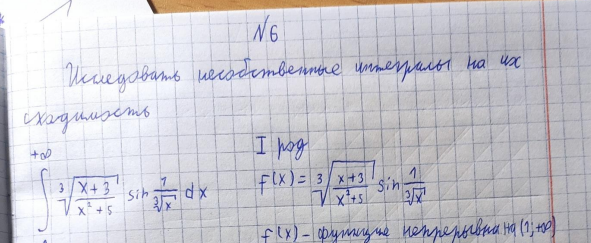 №6
Исследовать несобственные интегралы на их
сходимость
+∞
∫ ∛((x+3)/(x²+5)) sin 1/∛x dx
I род
f(x) = ∛((x+3)/(x²+5)) sin 1/∛x
f(x) - функция непрерывна на (1; +∞)